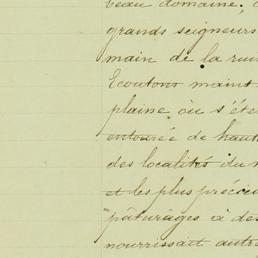 beau domaine,
grands seigneurs
main de la
Ecoutons maint
plaine où s'éte
entourée de haut
des localités du
et les plus préci
pâturages à des
nourrissait autre